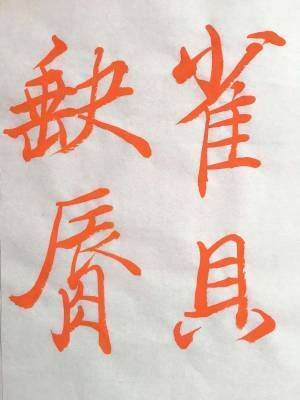 雀具
缺脣